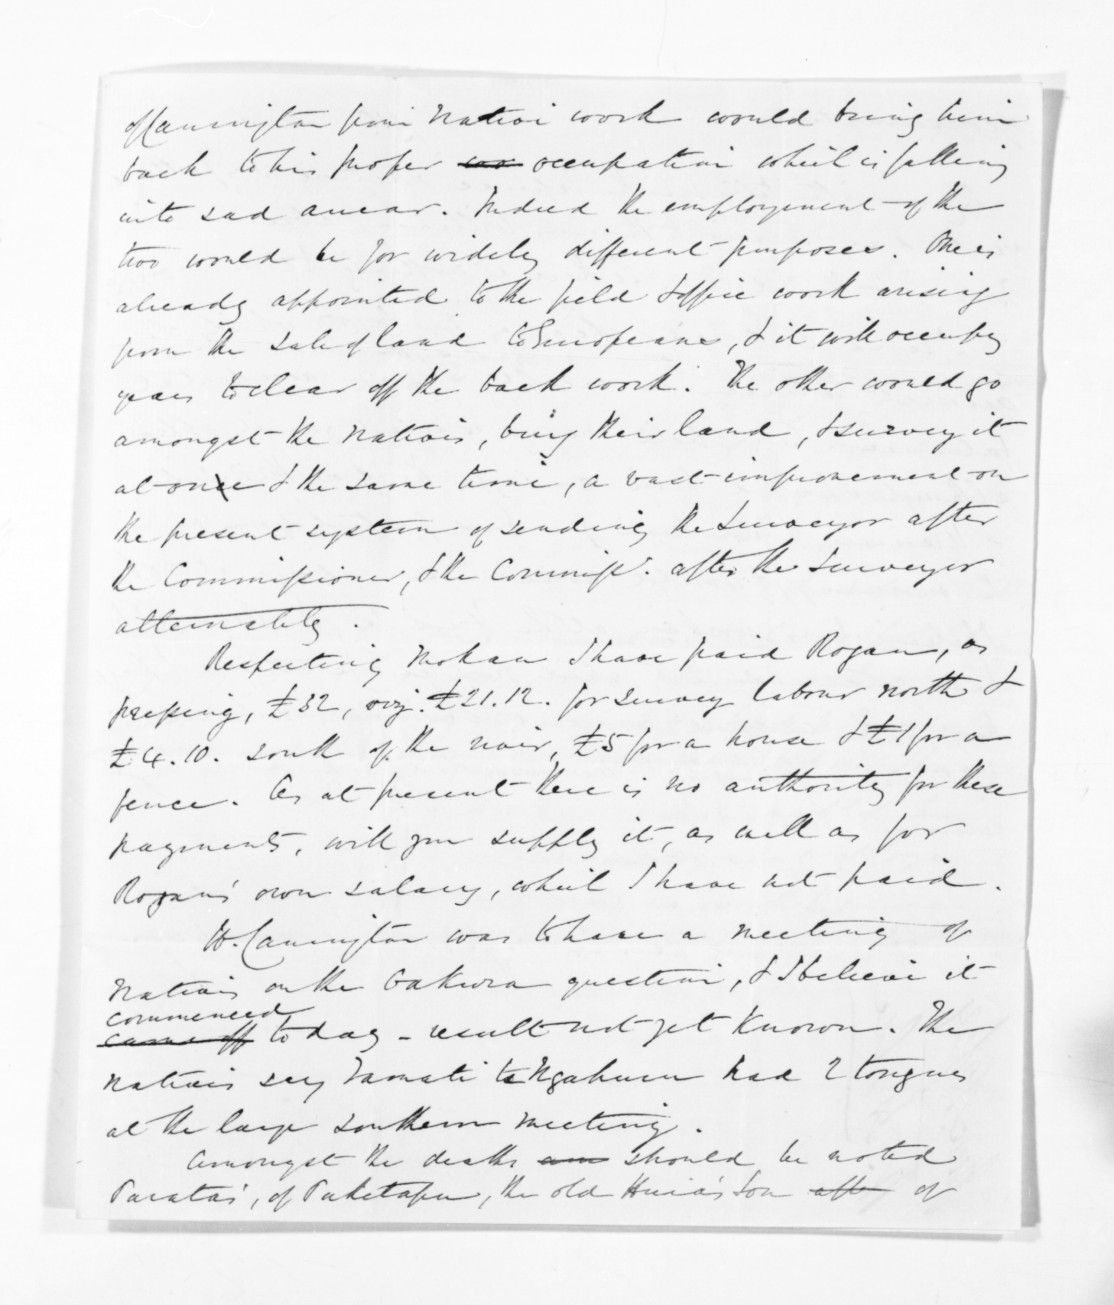 of Carrington from Native work would bring him
back to his proper occupation which is falling
into sad arrear. Indeed the employement of the
two would be for widely different purposes. One is
already appointed to the field & office work arising
from the sale of land to Europeans, & it will occupy
years to clear off the back work. The other would go
amongst the natives, buy their land, & survey it
at once & the same time, a vast improvement on
the present system of sending the Surveyor after
the Commissioner, & the Commissr. after the Surveyor
alternately.
Respecting Mokau I have paid Rogan, as
pressing, £32, viz. £21.12. for survey labour north &
£4.10. south of the river, £5 for a house & £1 for a
fence. As at present there is no authority for these
payments, will you supply it, as well as for
Rogan's own salary, which I have not paid.
W. Carrington was to have a meeting of
Natives on the question, & I believe it
commenced
came off to day - result not yet known. The
natives say Tamati te Ngahuru had 2 tongues
at the large southern meeting.
Amongst the deaths should be noted
Parata's, of Puketapu, the old Huria's son after of